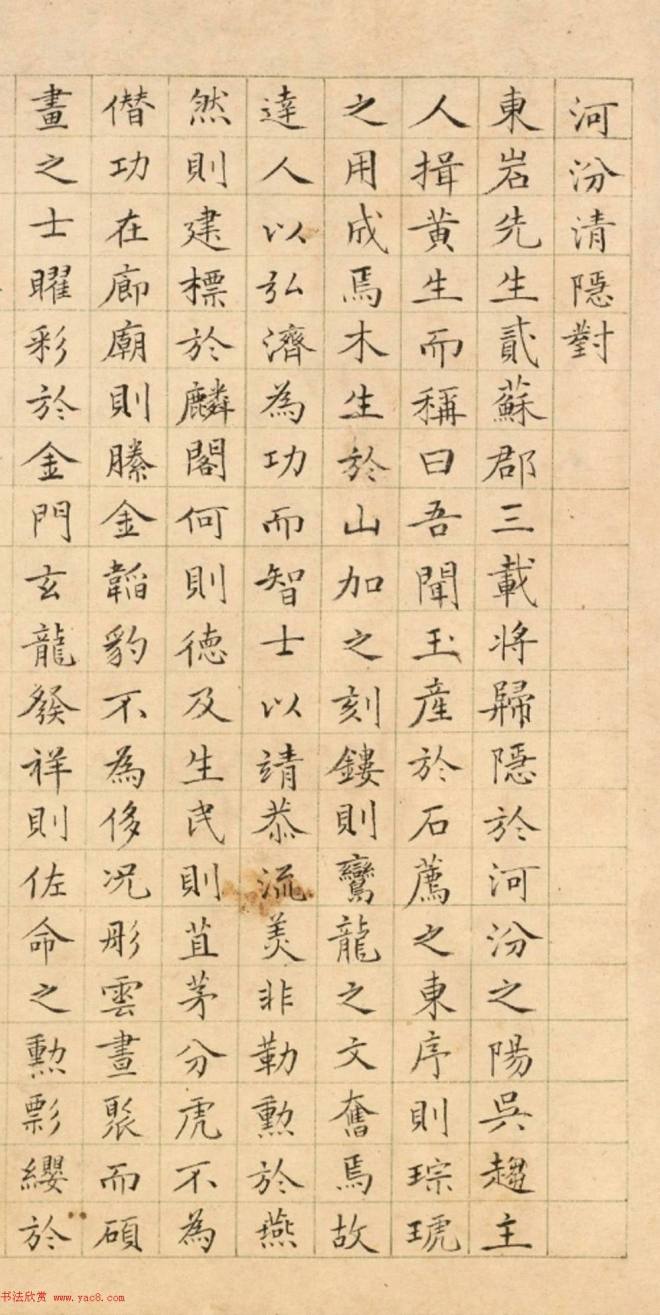 河汾清隱對
東岩先生貳蘇郡三載將歸隱於河汾之陽吳趨主
人揖黃生而稱曰吾聞玉產於石薦之東序則琮琥
之用成焉木生於山加之刻鏤則鸞龍之文奮焉故
達人以弘濟為功而智士以靖恭流美非勒勲於燕
然則建標於麟閣何則德及生民則苴茅分虎不為
僭功在廊廟則縢金韜豹不為侈况彤雲晝聚而碩
畫之士曜彩於金門玄龍發祥則佐命之勲影纓於
书法欣赏 www.yac8.com